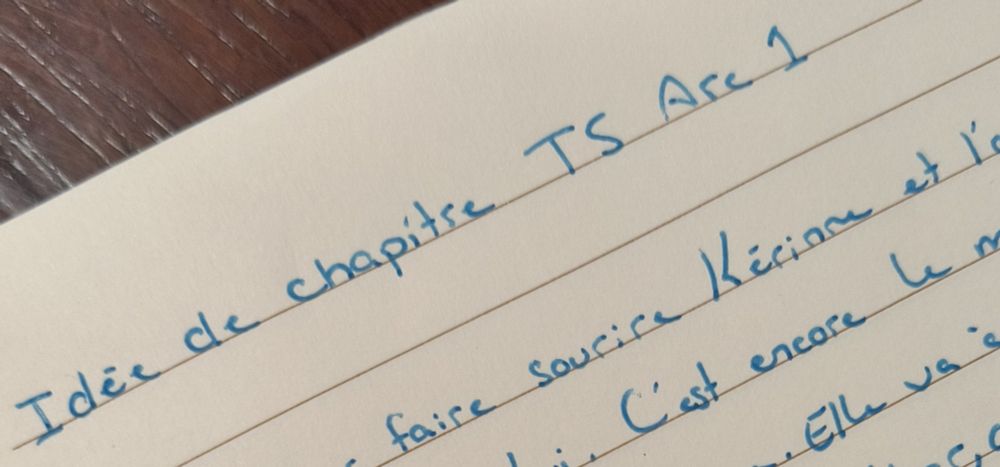 Idée de chapitre TS Arc 1
faire sourire Kécinne et
C'est encore le
. Elle va